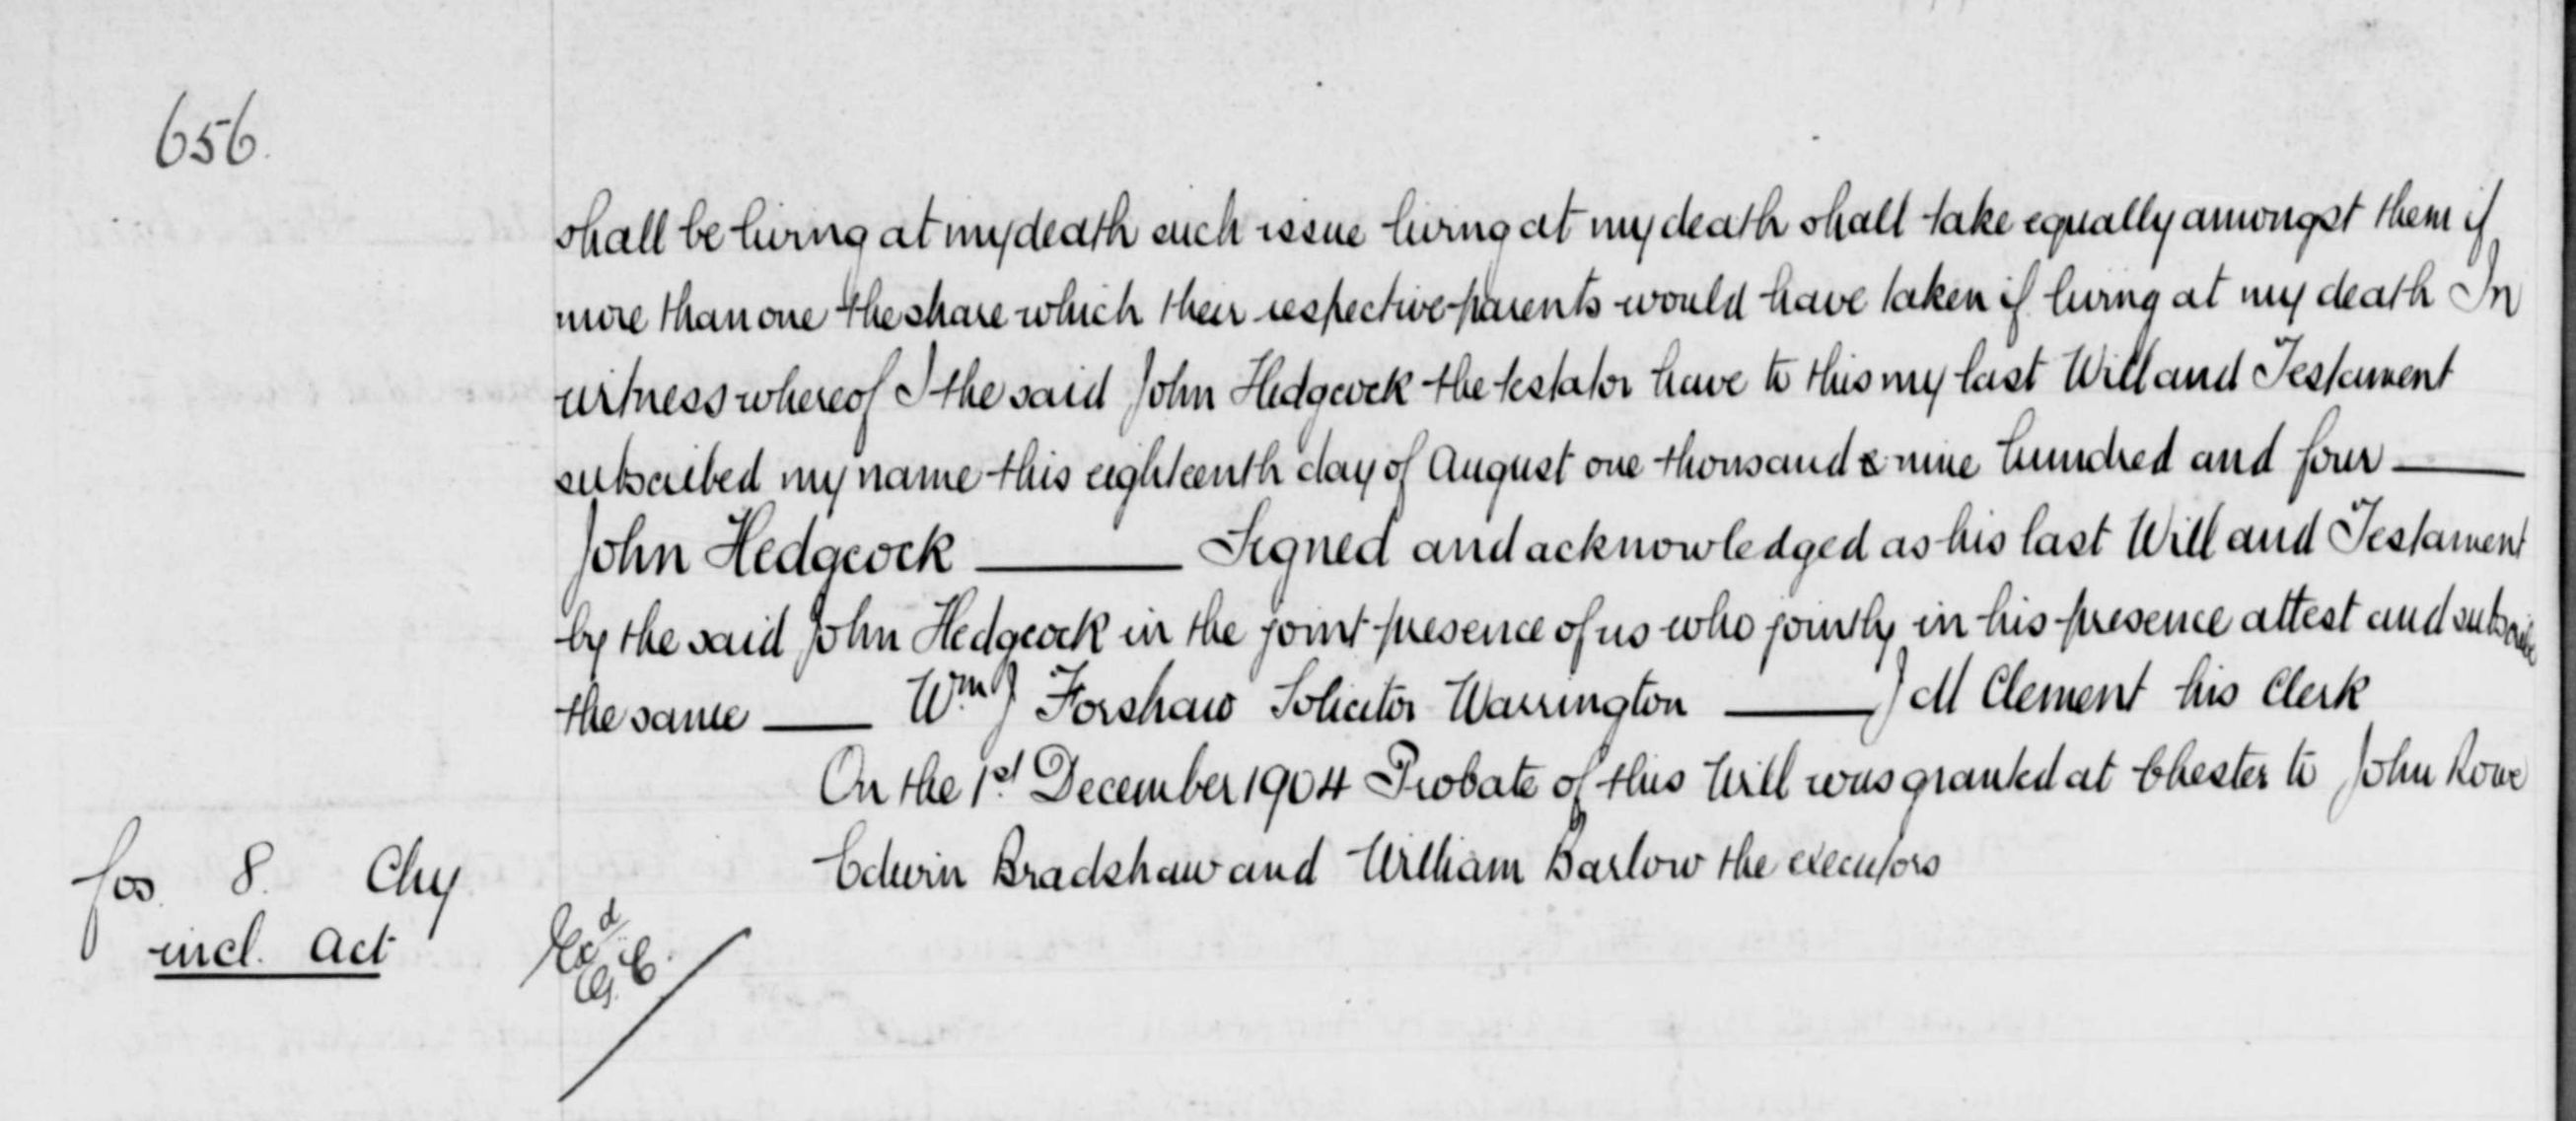 656.
shall be living at my death such issue living at my death shall take equally amongst them if
more than one the share which their respective parents would have taken if living at my death In
witness whereof I the said John Hedgcock the testator have to this my last Will and Testament
subscribed my name this eighteenth day of August one thousand & nine hundred and four —
John Hedgcock — Signed and acknowledged as his last Will and Testament
by the said John Hedgcock in the joint presence of us who jointly in his presence attest and subscribe
the same — Wm J Forshaw Solicitor Warrington — J M Clement his Clerk
On the 1st December 1904 Probate of this Will was granted at Chester to John Rowe
Edwin Bradshaw and William Barlow the executors
fos. 8. Chy
incl. Act
Exd